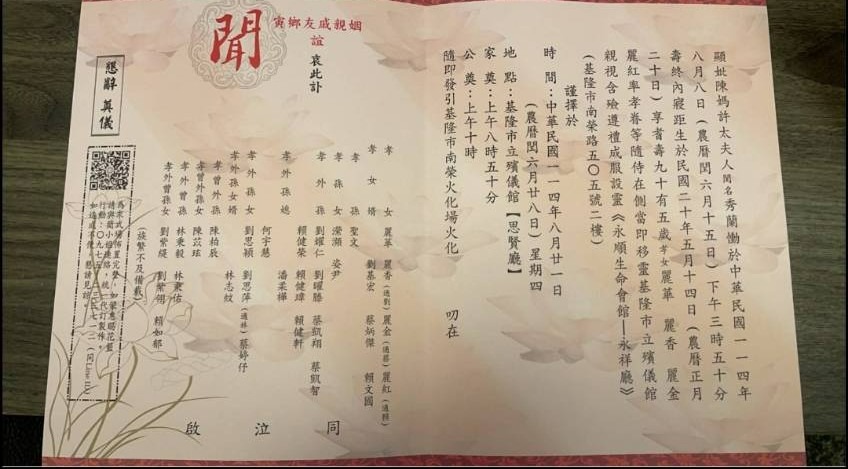 顯妣陳媽許太夫人閨名秀蘭慟於中華民國一一四年
八月八日（農曆閏六月十五日）下午三時五十分
壽終內寢距生於民國二十年五月十四日（農曆正月
二十日）享耆壽九十有五歲孝女麗華 麗香 麗金
麗紅率孝眷等隨侍在側當即移靈基隆市立殯儀館
親視含殮遵禮成服設靈《永順生命會館—永祥廳》
（基隆市南榮路五○五號二樓）
謹擇於
時間：中華民國一一四年八月廿一日
（農曆閏六月廿八日）星期四
地點：基隆市立殯儀館【思賢廳】
家奠：上午八時五十分
公奠：上午十時
隨即發引基隆市南榮火化場火化
叨在
姻親戚友鄉寅
誼
哀此訃
聞
孝女 麗華 麗香（適劉）麗金（適蔡）麗紅（適賴）
孝女婿 劉基宏 蔡炳傑 賴文國
孝孫 聖文
孝孫女 瀠瀕 姿尹
孝外孫 劉耀仁 劉曜勝 蔡凱翔 蔡凱智
賴健榮 賴健瑋 賴健軒
孝外孫媳 潘柔樺
何宇慧
孝外孫女 劉思穎 劉思萍（適林）蔡婷伃
孝外孫女婿 林志蚊
孝曾外孫 陳柏辰
孝曾外孫女 陳苡瑤
孝外曾孫 林秉毅 林秉佑
孝外曾孫女 劉紫緹 劉紫翎 賴如郁
（族繁不及備載）
同泣啟
懇辭奠儀
為求式場佈置完整，如蒙惠賜花籃
請與簡小姐連絡，統一代訂製作。
如造成不便，懇請見諒。